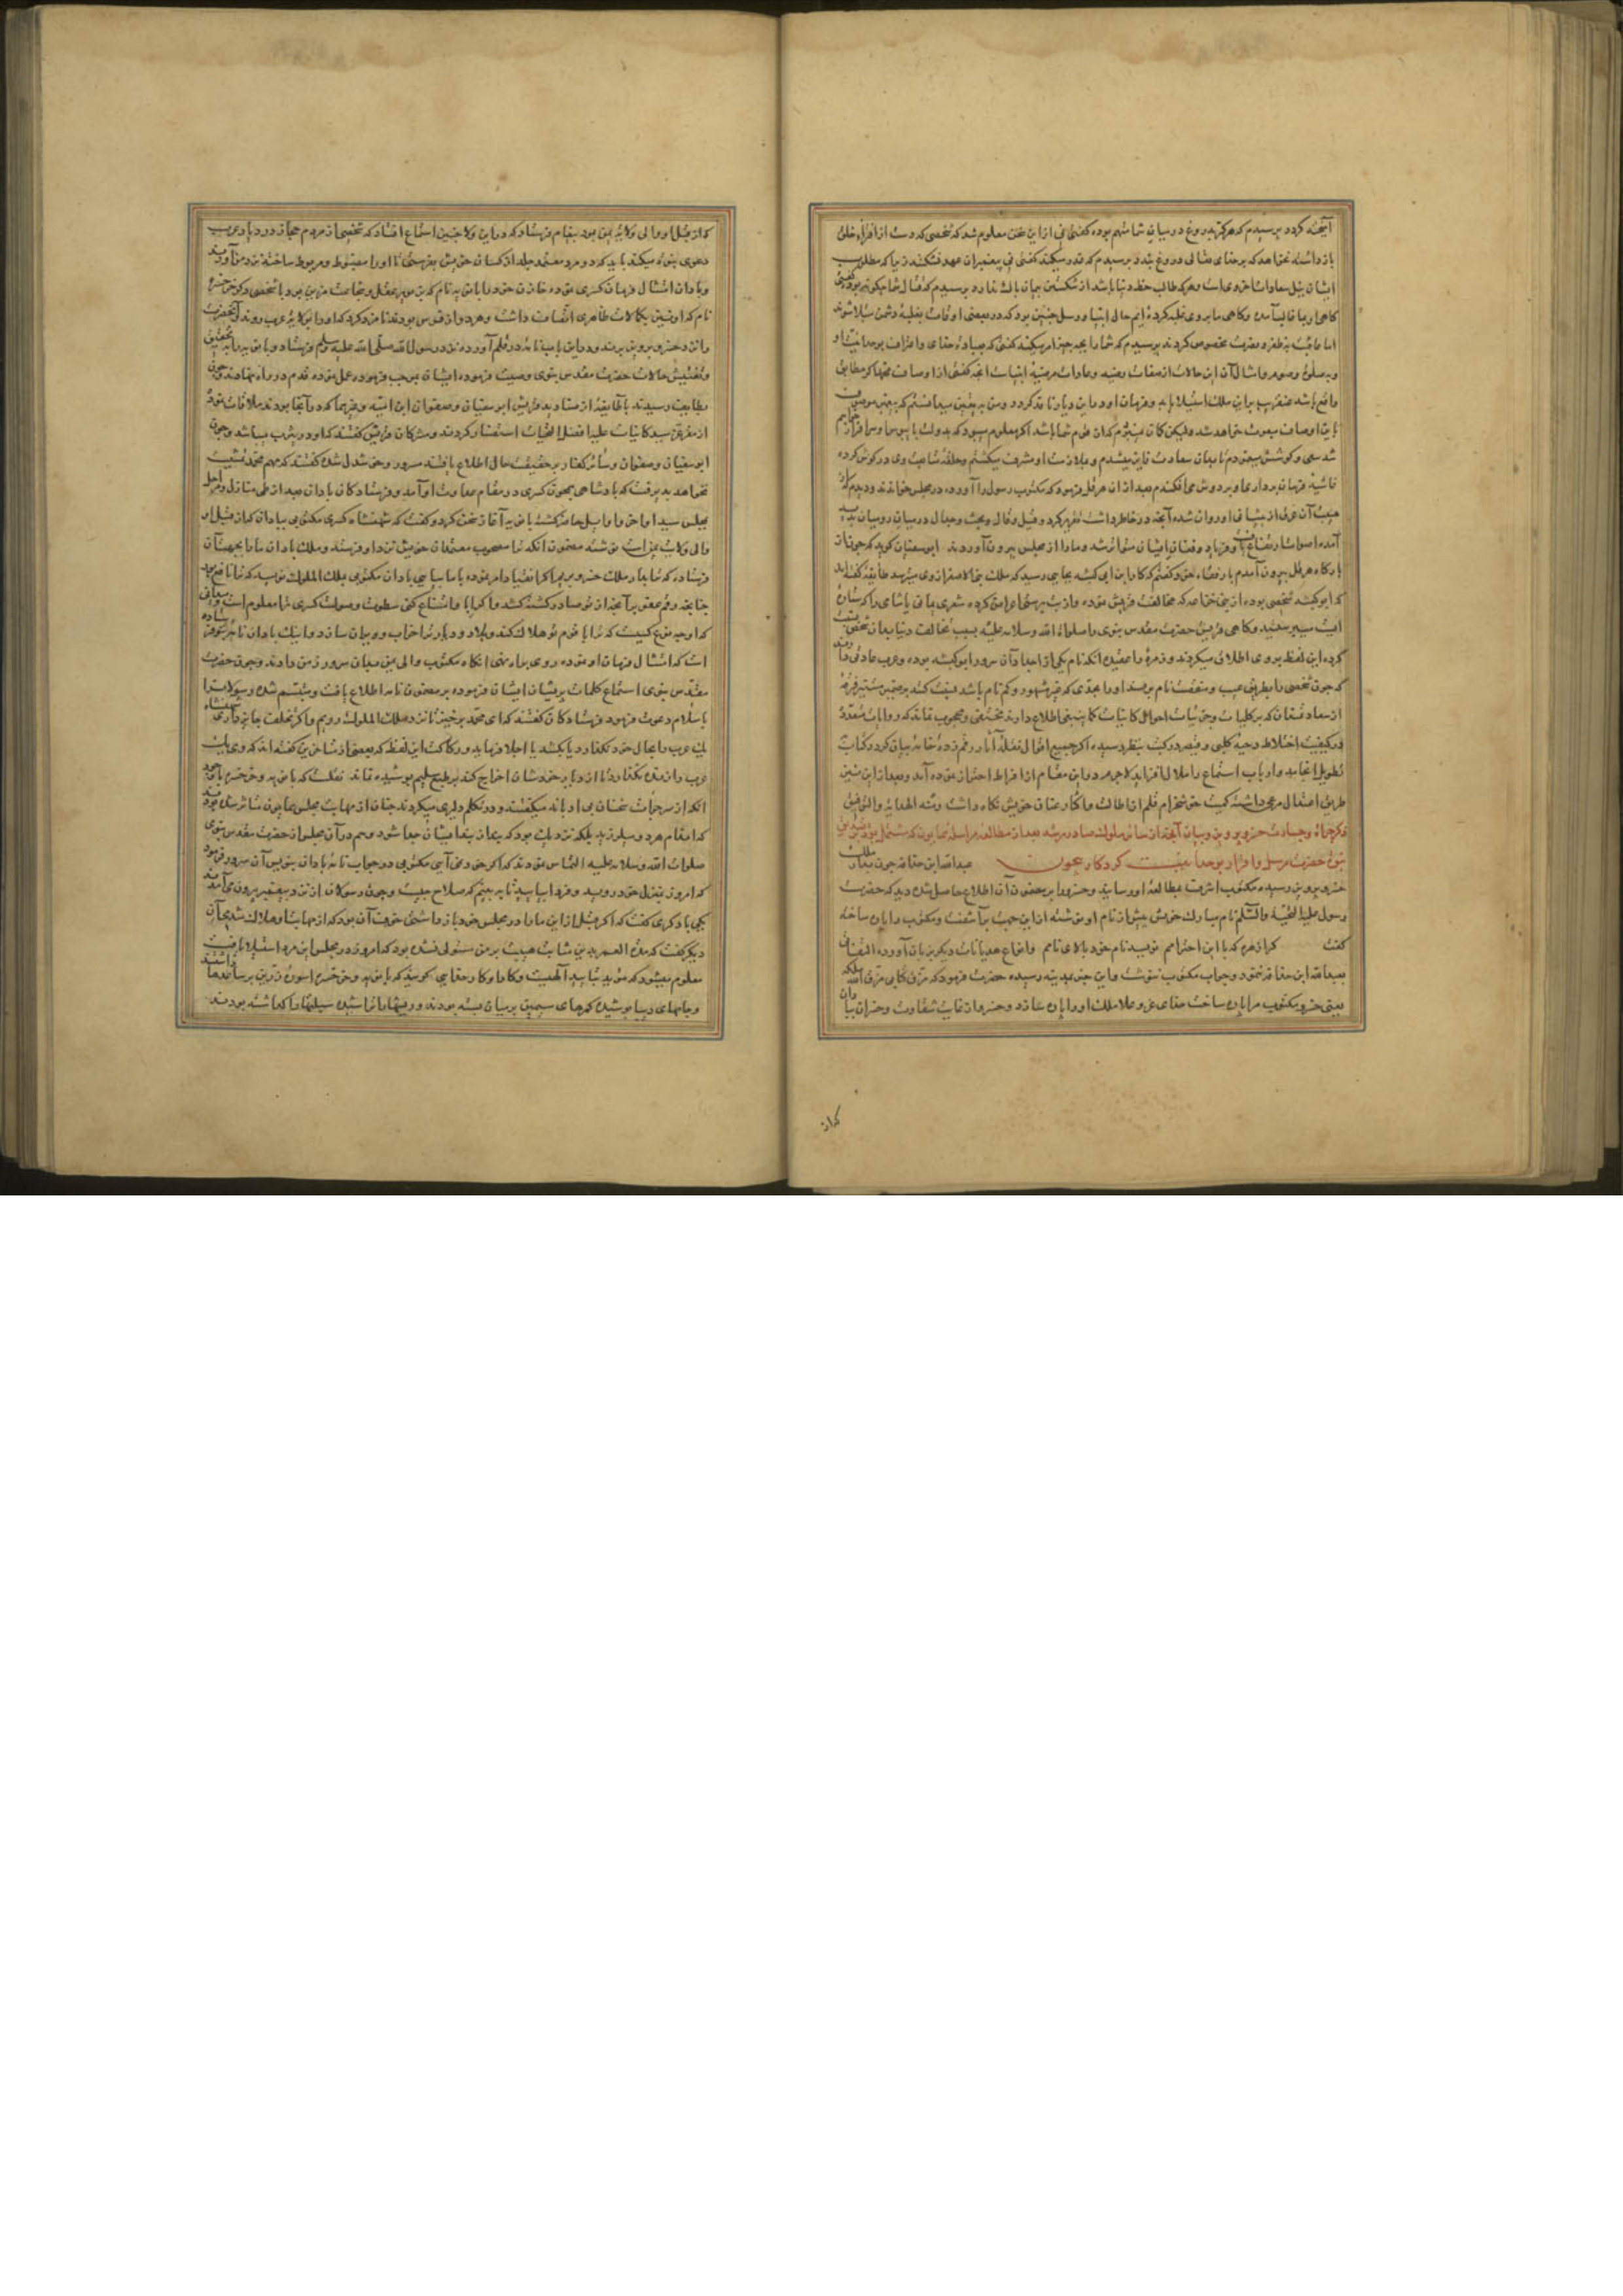 آمیخته کردد پرسیدم که هرکز بدروغ در میان شما متهم بوده کفتی نی ازین سخن معلوم شد که شخصی که دست از افترای خلق
باز داشته نخواهد که بر خدای تعالی دروغ بندد پرسیدم که غدر میکند کفتی نی پیغمبران عهد نشکنند زیرا که مطلوب
ایشان نیل سعادات اخروی است و هرکه طالب حظ دنیا باشد از شکستن پیمان باک ندارد پرسیدم که قتال شما چکونه بود کفتی
کاهی او بما غالب آمده و کاهی ما بر وی غلبه کرده ایم حال انبیا و رسل چنین بود که در بعضی اوقات بغلبه دشمن مبتلا شوند
اما عاقبت به ظفر و نصرت مخصوص کردند پرسیدم که شما را بچه چیز امر میکند کفتی که بعبادت خدای و اعتراف بوحدانیت او
و به صلوة و صوم و امثال آن این حالات از صفات رضیه و عادات مرضیه انبیاست آنچه کفتی از اوصاف
واقع باشد عنقریب برین ملک استیلا یابد و فرمان او درین دیار نافذ کردد و من به یقین میدانستم که پیغمبر موصوف
باین اوصاف مبعوث خواهد شد ولیکن کمان نمیبردم که از قوم شما باشد اکر معلوم میبود که بدولت پایبوس او سرافراز خواهم
شد سعی و کوشش مینمودم تا بدان سعادت فایز میشدم و بملازمت او مشرف میکشتم و حلقه متابعت وی در کوش کرده
غاشیه فرمان برداری او بر دوش می افکندم بعد از آن هرقل فرمود که مکتوب رسول را آورده در مجلس خواندند و دیدم که از
هیبت آن عرق از پیشانی او روان شد و آنچه در خاطر داشت تقریر کرد و قیل و قال و بحث و جدال در میان رومیان پدید
آمده اصوات ارتفاع یافت و فریاد و فغان ایشان متواتر شد و ما را از مجلس بیرون آوردند ابوسفیان کوید که چون از
بارکاه هرقل بیرون آمدم با رفقاء خود کفتم که کار ابن ابی کبشه بجایی رسید که ملک بنی الاصفر از وی میترسد طایفه کفته اند
که ابو کبشه شخصی بوده از بنی خزاعه که مخالفت قریش نموده و از بت پرستی اعراض کرده شعری یمانی یا شامی را که ستاره
ایست میپرستید و کاهی قریش حضرت مقدس نبوی را صلوات الله و سلامه علیه بسبب مخالفت دنیا بدان شخص نسبت
کرده این لفظ بر وی اطلاق میکردند و زمره را عقیده آنکه نام یکی از اجداد آن سرور ابو کبشه بوده و عرب عادتی دارند
که چون شخصی را بطریق عیب و منقصت نام برند او را بجدی که غیر مشهور و کم نام باشد نسبت کنند بر ضمیر مستنیر فرقه
از سعادتمندان که بر کلیات و جزئیات احوال کاینات کما ینبغی اطلاع دارند مختفی و محجوب نماند که روایات متعدده
در کیفیت اختلاط دحیه کلبی و قیصر در کتب بنظر رسیده اکر جمیع اقوال نقله آثار رقم زده خامه بیان کردد کتاب
بتطویل انجامد و ارباب استماع را ملال افزاید لاجرم درین مقام از افراط احتراز نموده آمد و بعد ازین نیز
طریق اعتدال مرعی داشته کمیت خوشخرام قلم از اطالت و اکثار عنان خویش نکاه داشت و منه الهدایة و التوفیق
ذکر جرأت و جسارت خسرو پرویز و بیان آنچه از سایر ملوک صادر شد بعد از مطالعه مراسله همایون که مشتمل بود
نبوة حضرت مرسل و اقرار بوحدانیت کردکار بیچون عبدالله ابن حذافه چون بدار الملک
خسرو پرویز رسیده مکتوب اشرف بمطالعه او رسانید و خسرو را بر مضمون آن اطلاع حاصل شد دید که حضرت
رسول علیه التحیة و السلم نام مبارک خویش پیش از نام او نوشته ازین جهت برآشفت و مکتوب را پاره ساخته
کفت کرا زهره که با این احترامم نویسد نام خود بالای نامم و انواع هذیانات دیکر بر زبان آورده التفات
بعبدالله ابن حذافه ننمود و جواب مکتوب ننوشت و این خبر بمدینه رسیده حضرت فرمود که مزق کتابی مزق الله ملکه
یعنی خسرو مکتوب مرا پاره ساخت خدای عز و علا ملک او را پاره سازد و خسرو از غایت شقاوت و خسران بباذان
کراز
که از قبل او والی ولایة یمن بود پیغام فرستاد که درین ولا چنین استماع افتاد که شخصی از مردم حجاز در دیار عرب
دعوی نبوة میکند باید که دو مرد معتمد جلد از کسان خویش بفرستی تا او را مضبوط و مربوط ساخته نزد من آورند
و باذان امتثال فرمان کسری نموده خازن خود را بابویه نام که بمزید عقل و شجاعت مزین بود با شخصی دیکر خرخسره
نام که او نیز بکمالات ظاهری اتصاف داشت و هر دو از فرس بودند نامزد کرد که او را بولایة عرب روند و آنحضرت
را نزد خسرو پرویز برند و درین باب نامه در قلم آورده نزد رسول الله صلی الله علیه وسلم فرستاد و بابویه را بتحقیق
و تفتیش حالات حضرت مقدس نبوی وصیت فرموده ایشان بموجب فرموده عمل نموده قدم در راه نهادند و چون
بطایف رسیدند با طایفه از صنادید قریش ابوسفیان و صفوان ابن امیه و غیرهما که در آنجا بودند ملاقات نموده
از مقر عز سید کاینات علیه افضل التحیات استفسار کردند و مشرکان قریش کفتند که او در یثرب میباشد و چون
ابوسفیان و صفوان و سائر کفار بر حقیقت حال اطلاع یافتند مسرور و خوشدل شده کفتند که مهم محمد تمشیت
نخواهد پذیرفت که پادشاهی همچون کسری در مقام معادات او آمد و فرستادکان باذان بعد از طی منازل و مراحل
بمجلس سید اواخر و اوایل حاضر کشته بابویه آغاز سخن کرد و کفت که شهنشاه کسری مکتوبی بباذان که از قبل او
والی ولایت یمن است نوشته مضمون آنکه ترا مصحوب معتمدان خویش نزد او فرستد و ملک باذان ما را بجهت آن
فرستاده که ترا بدار ملک خسرو بریم اکر انقیاد امر نموده با ما بیایی باذان مکتوبی بملک الملوک نویسد که ترا نافع بود
چنانچه رقم عفو بر آنچه از تو صادر کشته کشد و اکر ابا و امتناع کنی سطوت و صولت کسری ترا معلوم است و میدانی
که او چه نوع کسیست که ترا با قوم تو هلاک کند و بلاد و دیار ترا خراب و ویران سازد و اینک باذان نامه بتو فرستاده
است که امتثال فرمان او نموده روی براه نهی آنکاه مکتوب والی یمن بدان سرور زمن دادند و چون حضرت
مقدس نبوی استماع کلمات پریشان ایشان فرموده بر مضمون نامه اطلاع یافت متبسم شده رسولان را
باسلام دعوت فرمود فرستادکان کفتند که ای محمد برخیز تا نزد ملک الملوک رویم و اکر تخلف جایز داری شهنشاه
یک عرب را بحال خود نکذارد یا بکشد یا اجلا فرماید و رکاکت این لفظ که بعضی از متاخرین کفته اند که وی یک
عرب را زنده نکذارد تا از دیار خودشان اخراج کند بر طبع سلیم پوشیده نماند نقلست که بابویه و خرخسره با وجود
آنکه از سر جرأت سخنان بی ادبانه میکفتند و در تکلم دلیری میکردند چنان از مهابت مجلس همایون متاثر شده بودند
که اعظام هر دو میلرزید بلکه نزدیک بود که بندان بند ایشان جدا شود و هم در آن مجلس از حضرت مقدس نبوی
صلوات الله و سلامه علیه التماس نمودند که اکر خود نمی آیی مکتوبی در جواب نامه باذان بنویس آن سرور فرمود
که امروز بمنزل خود روید و فردا بیایید تا ببینیم که صلاح چیست و چون رسولان از نزد پیغمبر بیرون می آمدند
یکی با دیکری کفت که اکر قبل ازین ما را در مجلس خود باز داشتی خوف آن بود که از مهابت او هلاک شدیمی آن
دیکر کفت که مدة العمر بدین مثابت هیبت بر من مستولی نشده بود که امروز در مجلس این مرد استیلا یافت
معلوم میشود که مؤید بتایید آلهیست و کار او کار خدایی کویند که بابویه و خرخسره اسوره زرین بر ساعدها داشتند
و جامهای دیبا پوشیده کمرهای سیمین بر میان بسته بودند و ریشها را تراشیده سبلتها را کذاشته بودند